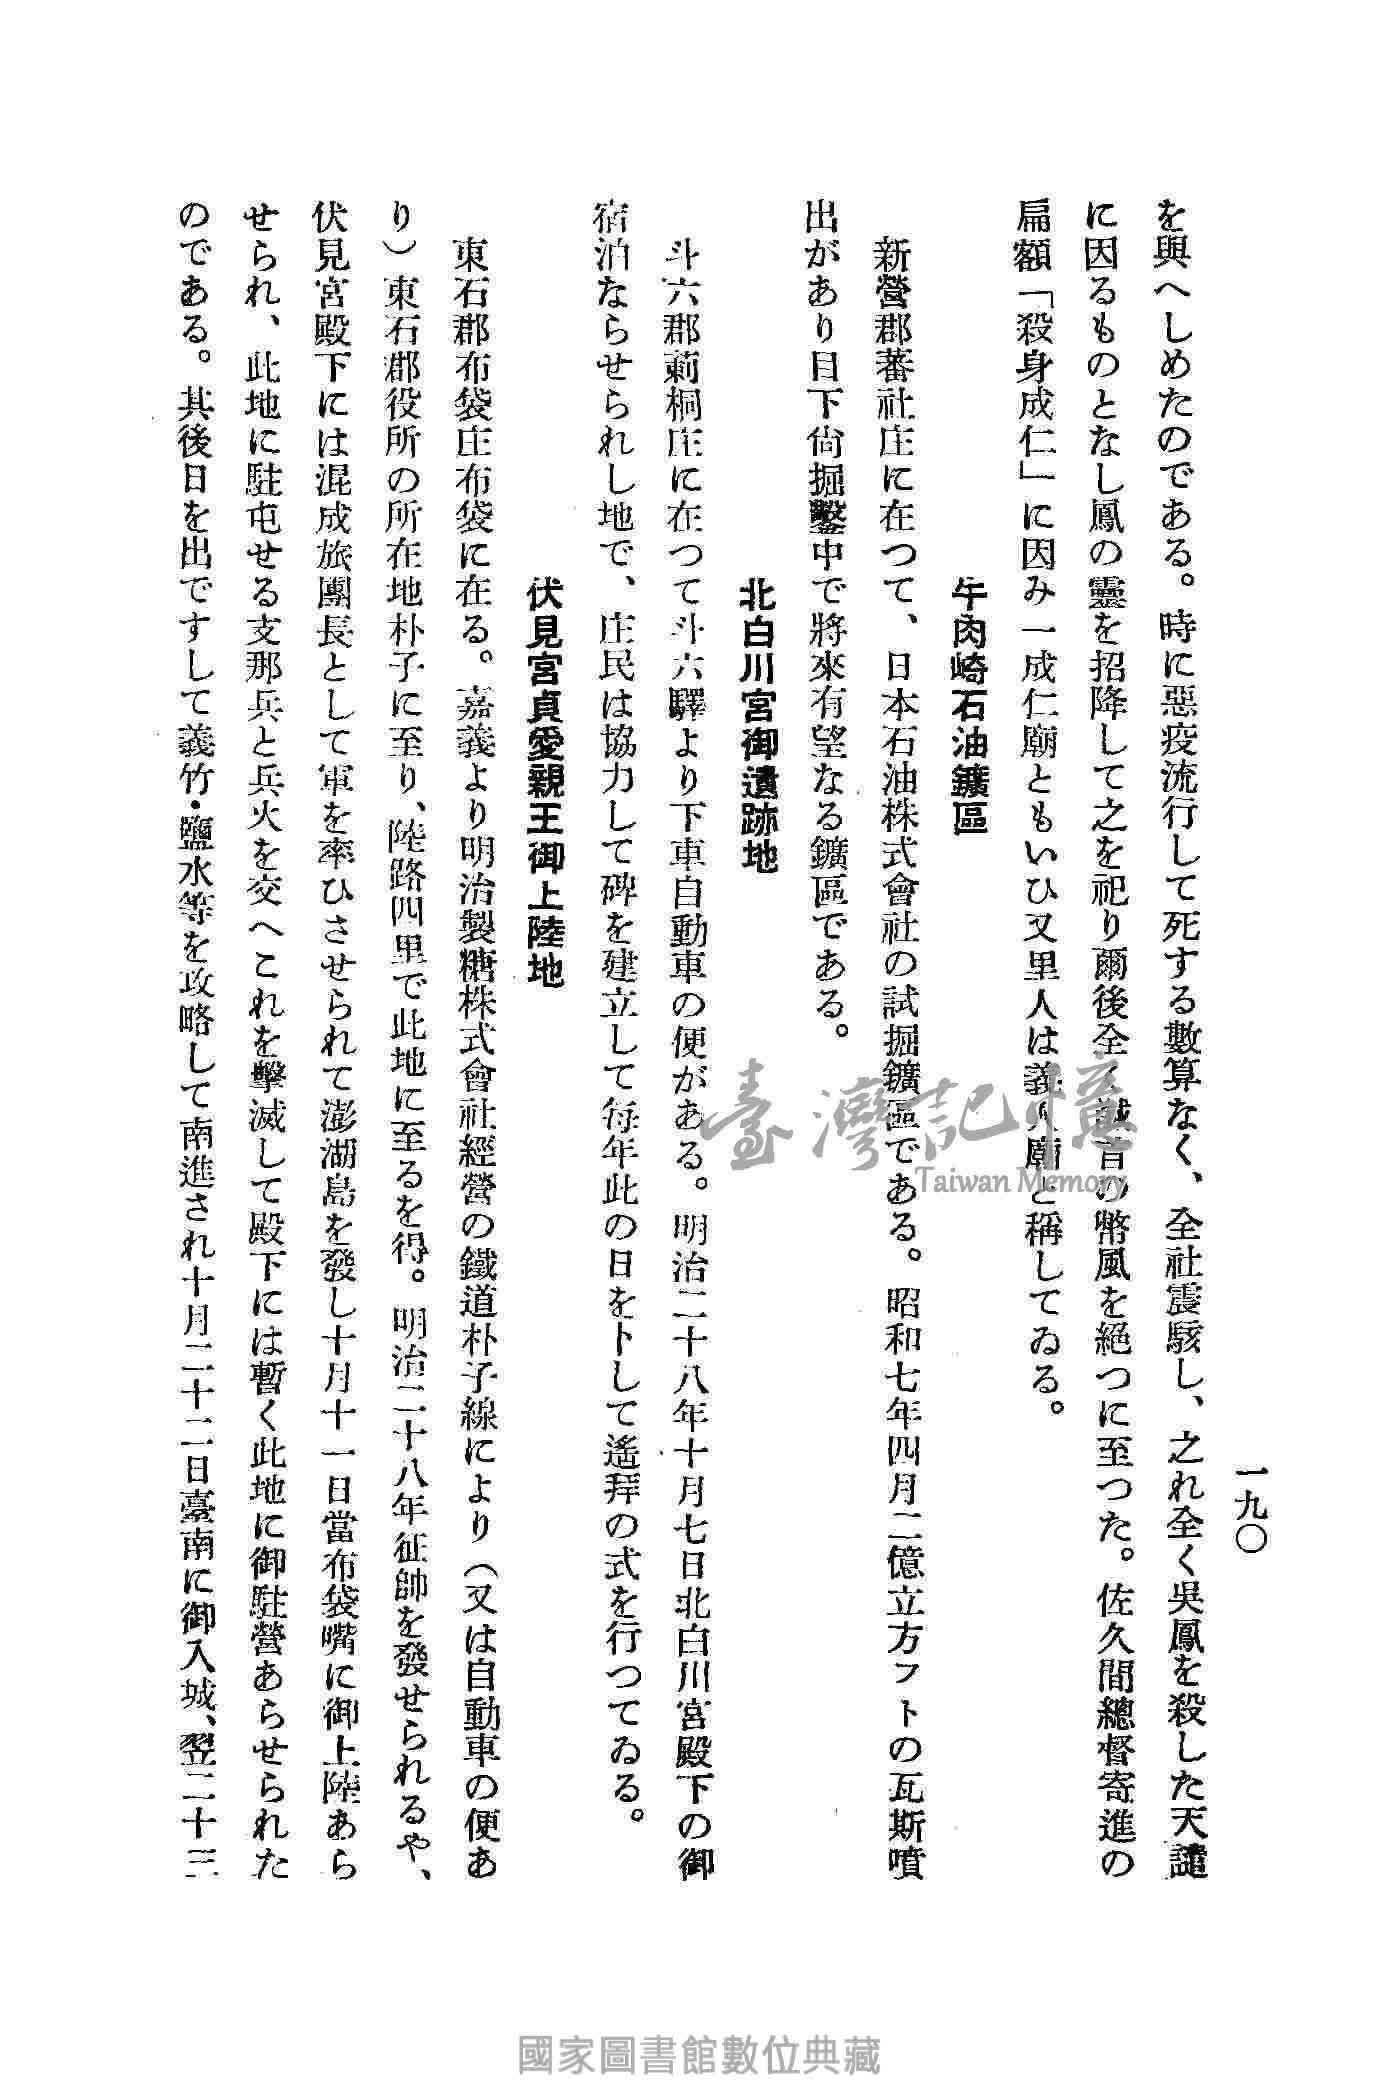 一九〇
を與へしめたのである。時に惡疫流行して死する數算なく、全社震駭し、之れ全く吳鳳を殺した天譴
に因るものとなし鳳の靈を招降して之を祀り爾後全く馘首の幣風を絕つに至つた。佐久間總督寄進の
扁額「殺身成仁」に因み一成仁廟ともいひ又里人は義人廟と稱してゐる。
牛肉崎石油鑛區
新營郡蕃社庄に在つて、日本石油株式會社の試掘鑛區である。昭和七年四月二億立方フトの瓦斯噴
出があり目下尙掘鑿中で將來有望なる鑛區である。
北白川宮御遺跡地
斗六郡莿桐庄に在つて斗六驛より下車自動車の便がある。明治二十八年十月七日北白川宮殿下の御
宿泊ならせられし地で、庄民は協力して碑を建立して每年此の日を卜して遙拜の式を行つてゐる。
伏見宮貞愛親王御上陸地
東石郡布袋庄布袋に在る。嘉義より明治製糖株式會社經營の鐵道朴子線により（又は自動車の便あ
り）東石郡役所の所在地朴子に至り、陸路四里で此地に至るを得。明治二十八年征帥を發せられるや、
伏見宮殿下には混成旅團長として軍を率ひさせられて澎湖島を發し十月十一日當布袋嘴に御上陸あら
せられ、此地に駐屯せる支那兵と兵火を交へこれを擊滅して殿下には暫く此地に御駐營あらせられた
のである。其後日を出ですして義竹・鹽水等を攻略して南進され十月二十二日臺南に御入城、翌二十三
臺灣記憶
Taiwan Memory
國家圖書館數位典藏